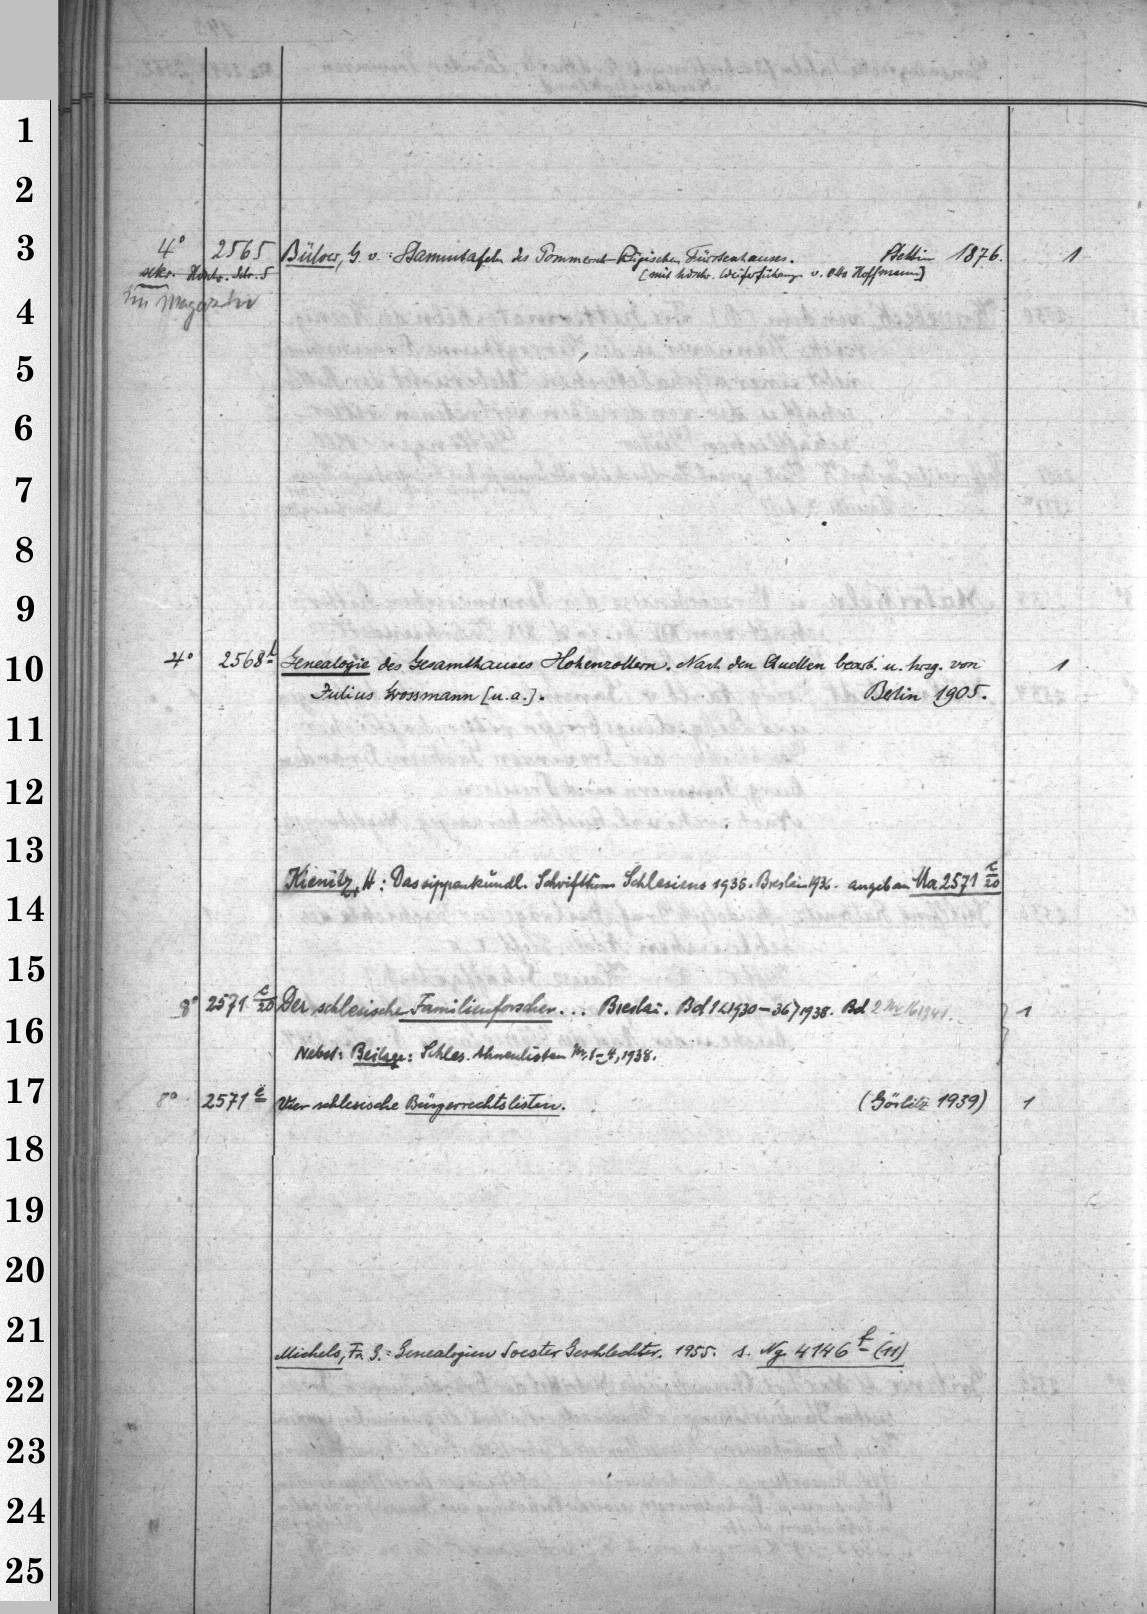 1
2
3
4
5
6
7
8
9
10
11
12
13
14
15
16
17
18
19
20
21
22
23
24
25
4° 2565 Bülow, G. v.: Stammtafeln des Pommersch-Rügischen Fürstenhauses. Stettin 1876. 1
[mit hdschr. Weiterführung v. Otto Hoffmann]
im Magazin
4° 2568 Genealogie des Gesamthauses Hohenzollern. Nach den Quellen bearb. u. hrsg. von 1
Julius Grossmann [u.a.]. Berlin 1905.
Kienitz, H: Das sippenkundl. Schrifttum Schlesiens 1935. Breslau 1936. angeb. an Na 2571 c/20
8° 2571 c/20 Der schlesische Familienforscher... Breslau. Bd 1 <1930-36> 1938. Bd 2 1
Nebst: Beilage: Schles. Ahnenlisten Nr. 1-4, 1938.
8° 2571 e Vier schlesische Bürgerrechtslisten. (Görlitz 1939) 1
Michels, Fr. G.: Genealogien Soester Geschlechter. 1955. s. Ng 4146 f (11)